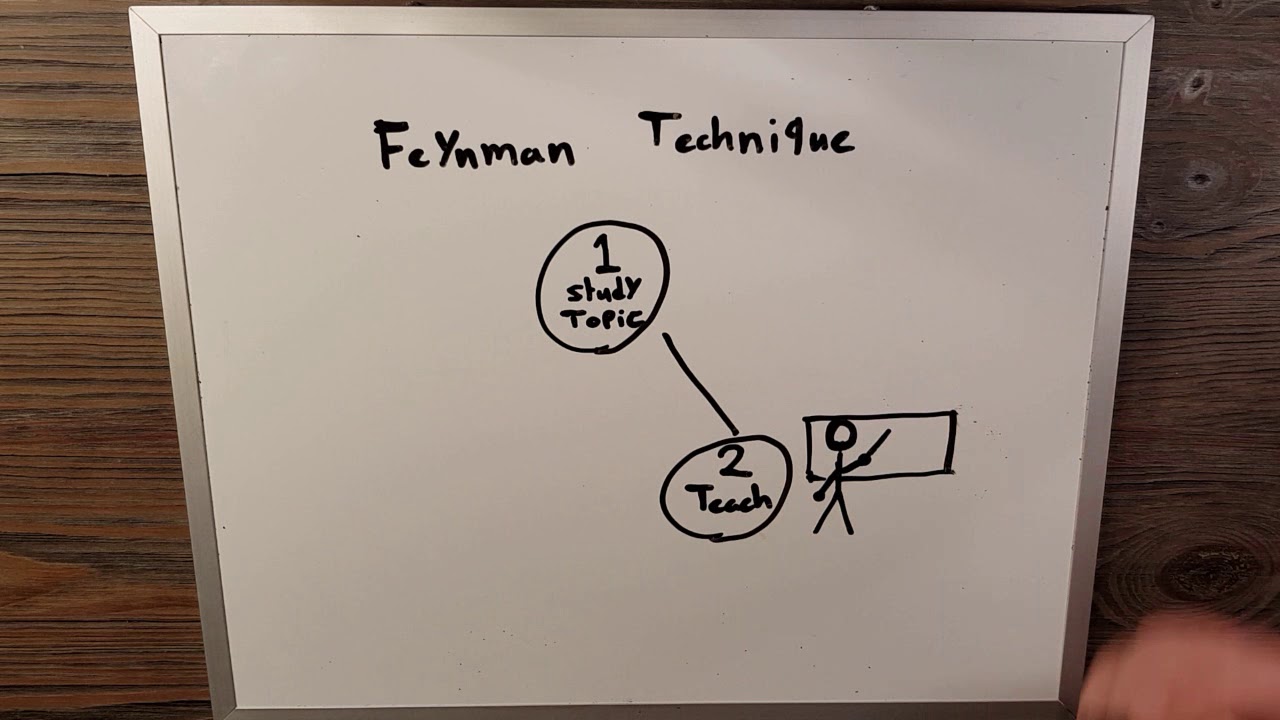 Feynman Technique
1
Study
Topic
2
Teach